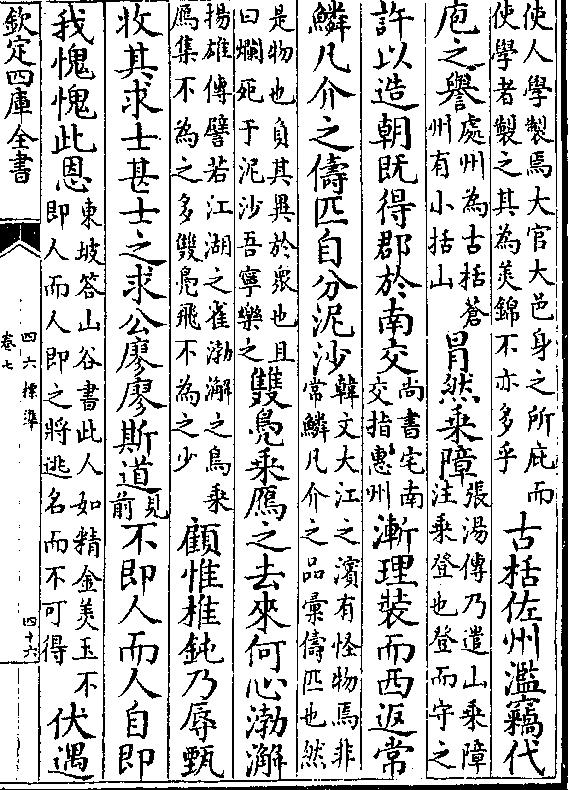 使人學製焉大官大邑身之所庇而
使學者製之其為美錦不亦多乎
古栝佐州濫竊代
庖之譽
處州為古栝蒼
州有小括山
肙然乘障
張湯傳乃遣山乘障
注乘登也登而守之
許以造朝既得郡於南交
尚書宅南
交指惠州
漸理裝而西返常
鱗凡介之儔匹自分泥沙
韓文大江之濱有怪物焉非
常鱗凡介之品彚儔匹也然
是物也負其異於衆也且
曰爛死于泥沙吾寧樂之
雙鳬乘鴈之去來何心渤澥
揚雄傳譬若江湖之雀渤澥之鳥乘
鴈集不為之多雙鳬飛不為之少
顧惟椎鈍乃辱甄
收其求士甚士之求公廖廖斯道
見
前
不即人而人自即
我愧愧此恩
東坡答山谷書此人如精金美玉不
即人而人即之將逃名而不可得
伏遇
欽定四庫全書
四六標準
卷七
四十六